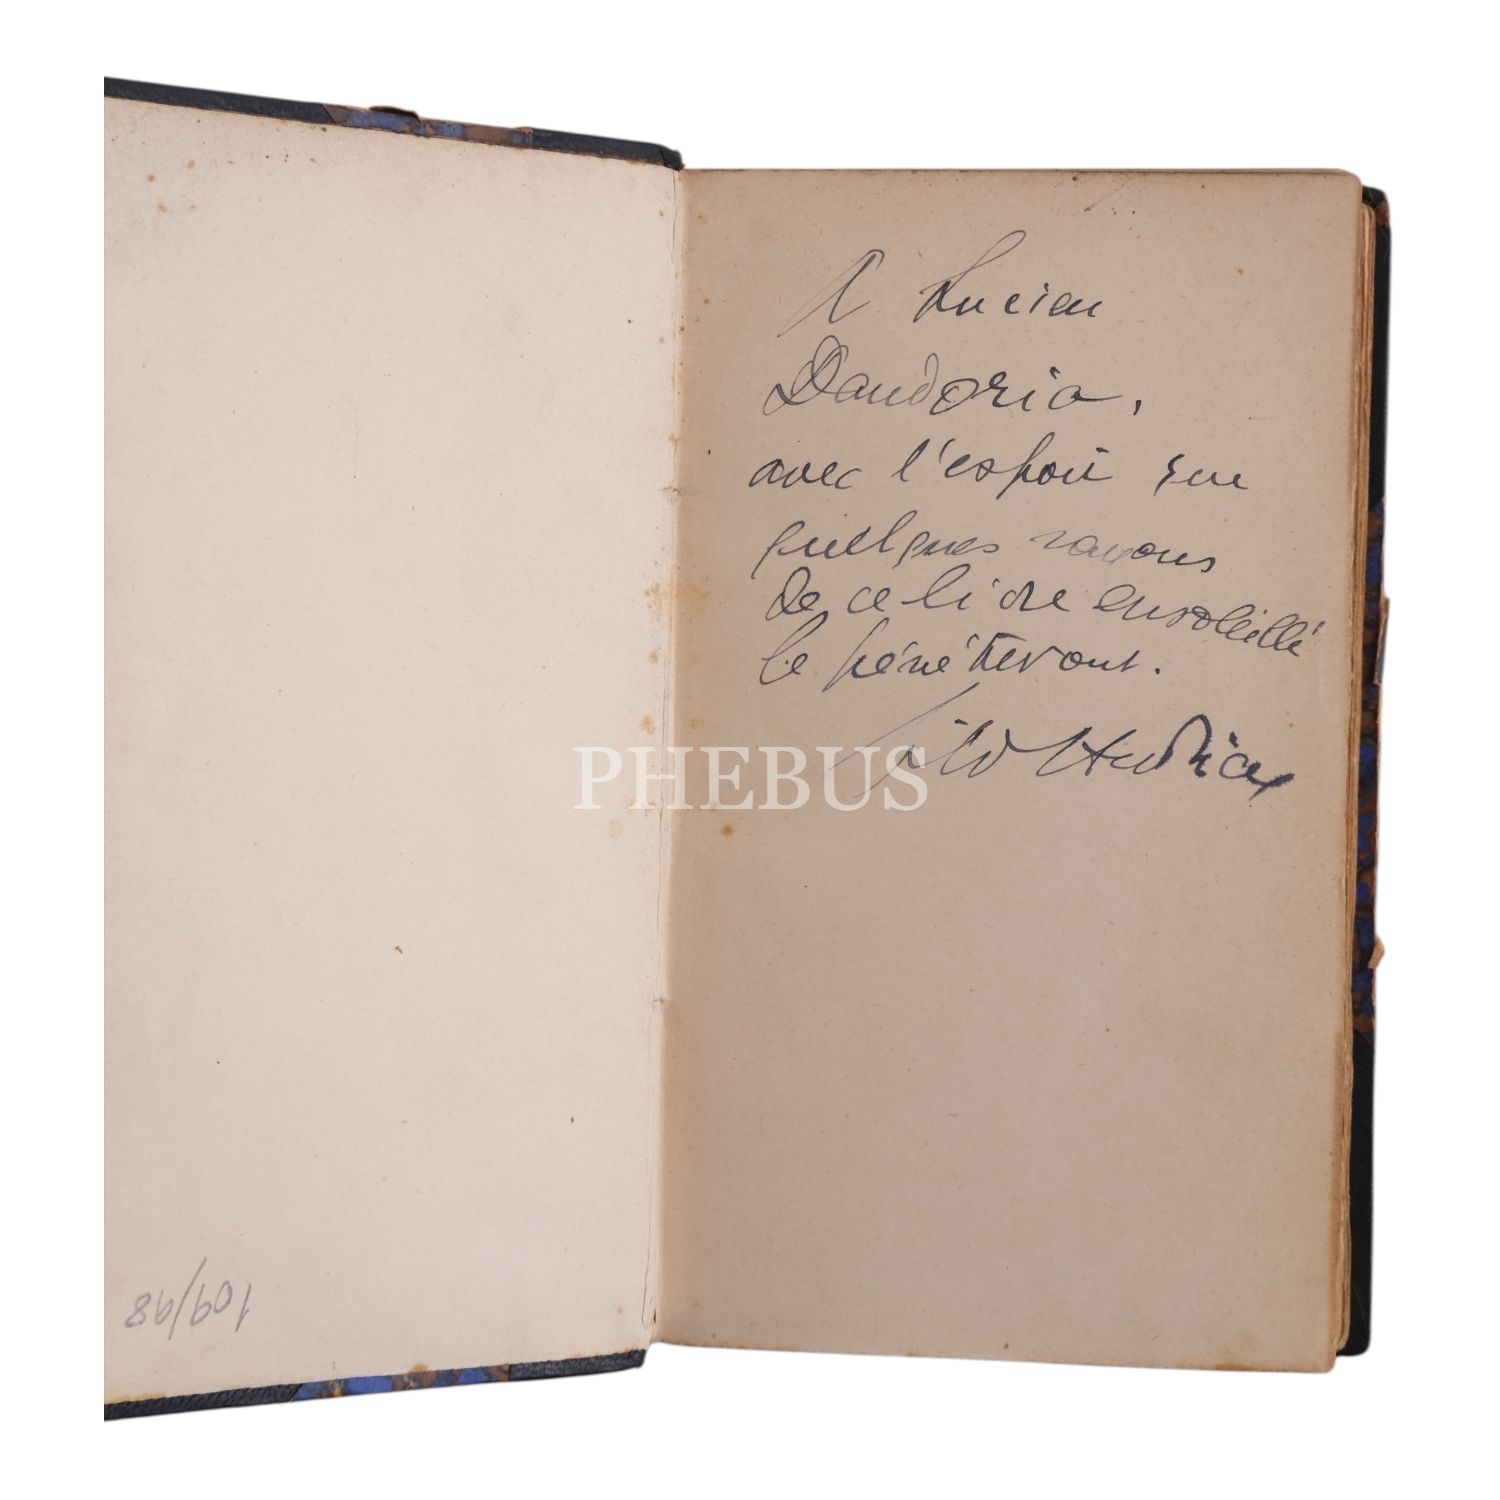 A Lucien
Dandoria,
avec l'espoir que
quelques rayons
de ce livre ensoleillé
le pénétreront.
PHEBUS
109/98